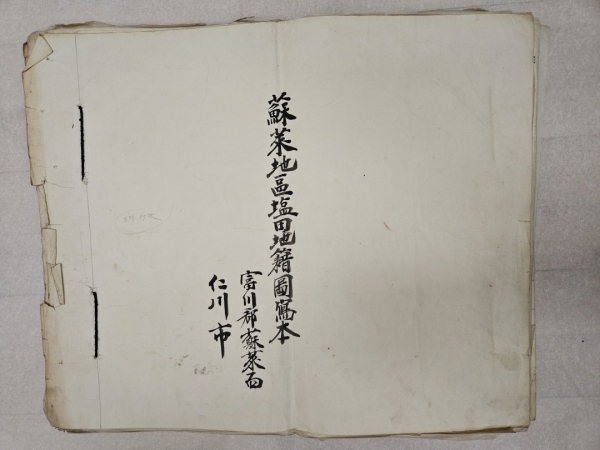 蘇萊地區塩田地籍圖寫本
富川郡蘇萊面
仁川市